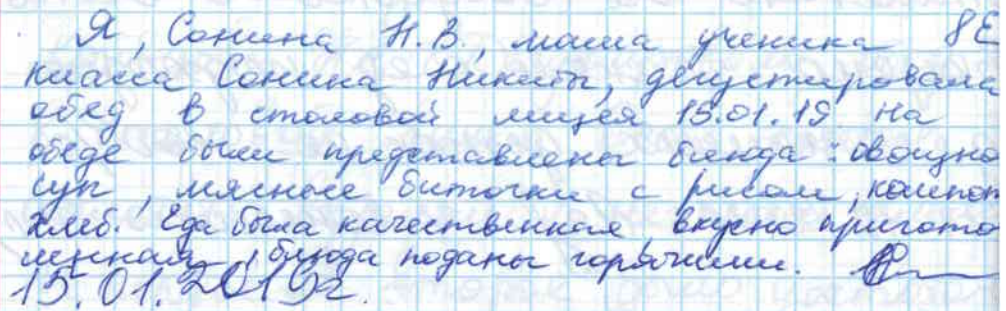 Я, Сонина Н.В., мама ученика 8Е
класса Сонина Никиты, дегустировала
обед в столовой лицея 15.01.19. На
обеде были представлены блюда: овощно
суп, мясные биточки с рисом, компот
хлеб. Еда была качественная, вкусно пригото
ленная, блюда поданы горячими.
15.01.2019г.